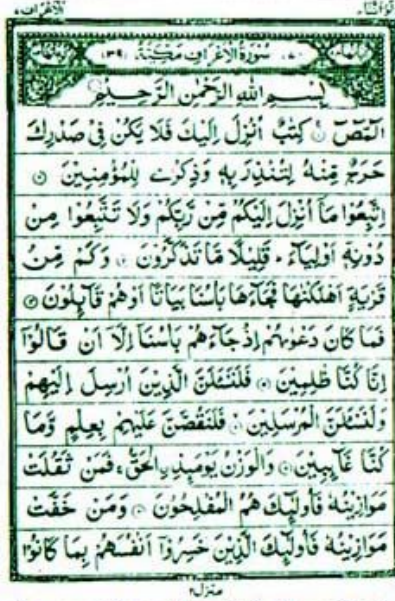 الاعراف ٧
سُوْرَةُ الْاَعْرَافِ مَكِّيَّةٌ (٣٩)
بِسْمِ اللهِ الرَّحْمٰنِ الرَّحِيْمِ
الٓمّٓصٓ ۚ كِتٰبٌ اُنْزِلَ اِلَيْكَ فَلَا يَكُنْ فِيْ صَدْرِكَ
حَرَجٌ مِّنْهُ لِتُنْذِرَ بِهٖ وَذِكْرٰى لِلْمُؤْمِنِيْنَ
اِتَّبِعُوْا مَآ اُنْزِلَ اِلَيْكُمْ مِّنْ رَّبِّكُمْ وَلَا تَتَّبِعُوْا مِنْ
دُوْنِهٖٓ اَوْلِيَآءَ ؕ قَلِيْلًا مَّا تَذَكَّرُوْنَ وَكَمْ مِّنْ
قَرْيَةٍ اَهْلَكْنٰهَا فَجَآءَهَا بَاْسُنَا بَيَاتًا اَوْ هُمْ قَآئِلُوْنَ
فَمَا كَانَ دَعْوٰىهُمْ اِذْ جَآءَهُمْ بَاْسُنَآ اِلَّآ اَنْ قَالُوْٓا
اِنَّا كُنَّا ظٰلِمِيْنَ فَلَنَسْـَٔلَنَّ الَّذِيْنَ اُرْسِلَ اِلَيْهِمْ
وَلَنَسْـَٔلَنَّ الْمُرْسَلِيْنَ فَلَنَقُصَّنَّ عَلَيْهِمْ بِعِلْمٍ وَّمَا
كُنَّا غَآئِبِيْنَ وَالْوَزْنُ يَوْمَئِذِ ِۨالْحَقُّ ۚ فَمَنْ ثَقُلَتْ
مَوَازِيْنُهٗ فَاُولٰٓئِكَ هُمُ الْمُفْلِحُوْنَ وَمَنْ خَفَّتْ
مَوَازِيْنُهٗ فَاُولٰٓئِكَ الَّذِيْنَ خَسِرُوْٓا اَنْفُسَهُمْ بِمَا كَانُوْا
منزل٢